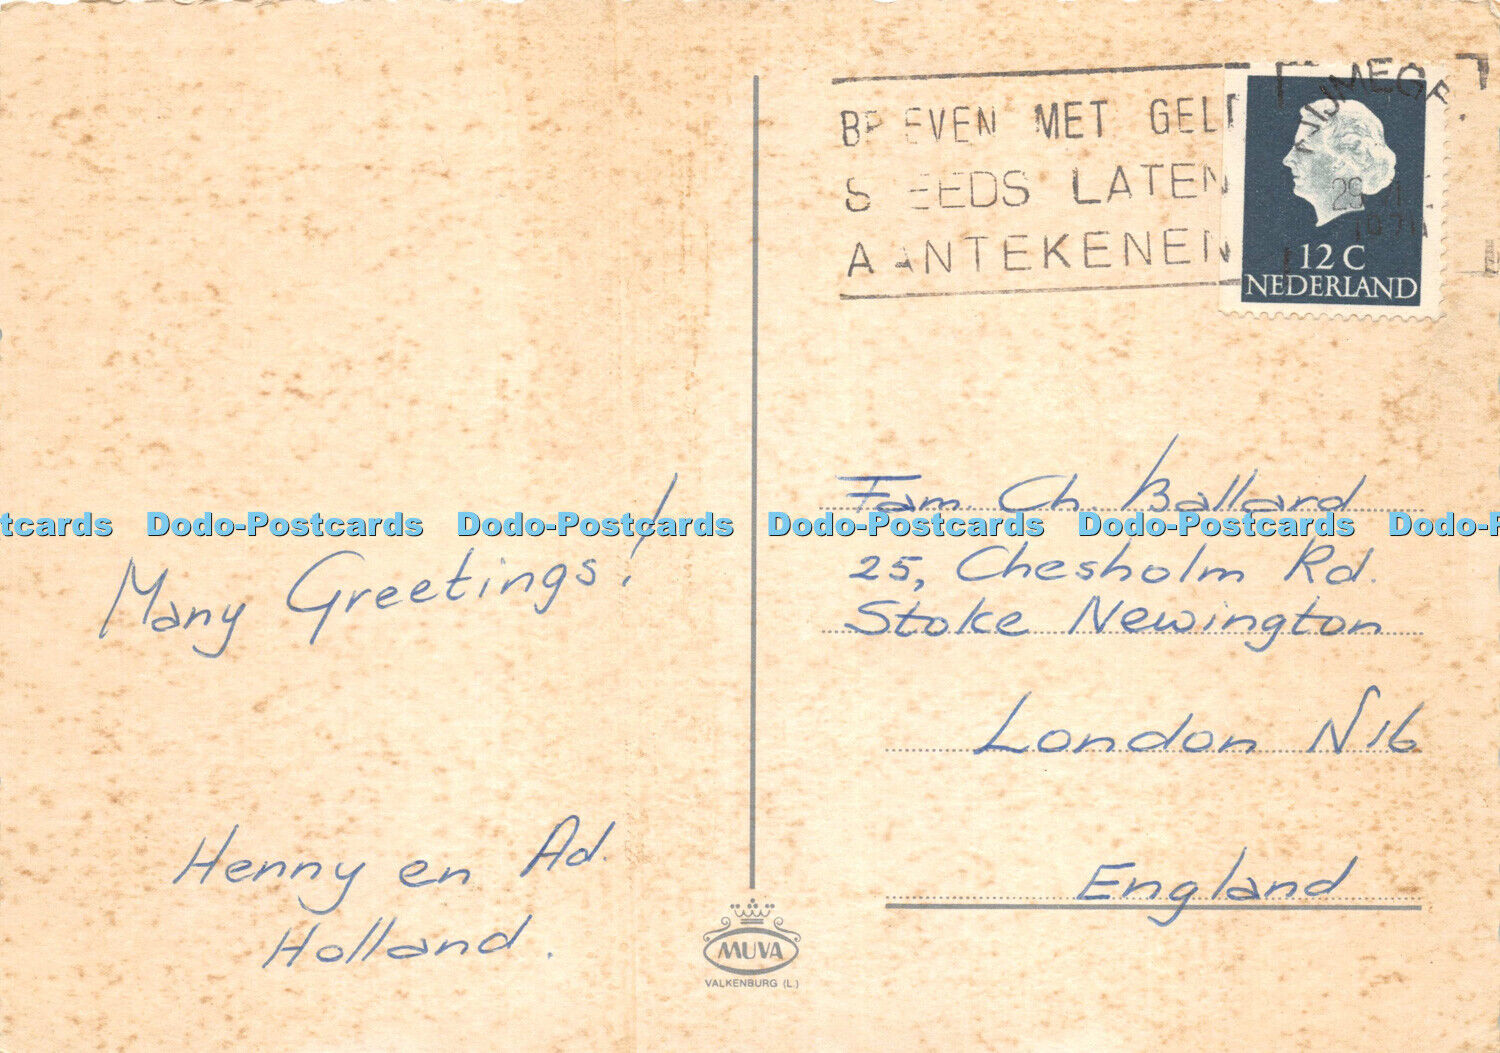 BRIEVEN MET GELD
STEEDS LATEN
AANTEKENEN
NIJMEGEN
29
12 C
NEDERLAND
Many Greetings!
Henny en Ad.
Holland.
Fam. Ch. Ballard
25, Chesholm Rd.
Stoke Newington
London N16
England
MUVA
VALKENBURG (L.)
tcards Dodo-Postcards Dodo-Postcards Dodo-Postcards Dodo-Postcards Dodo-P